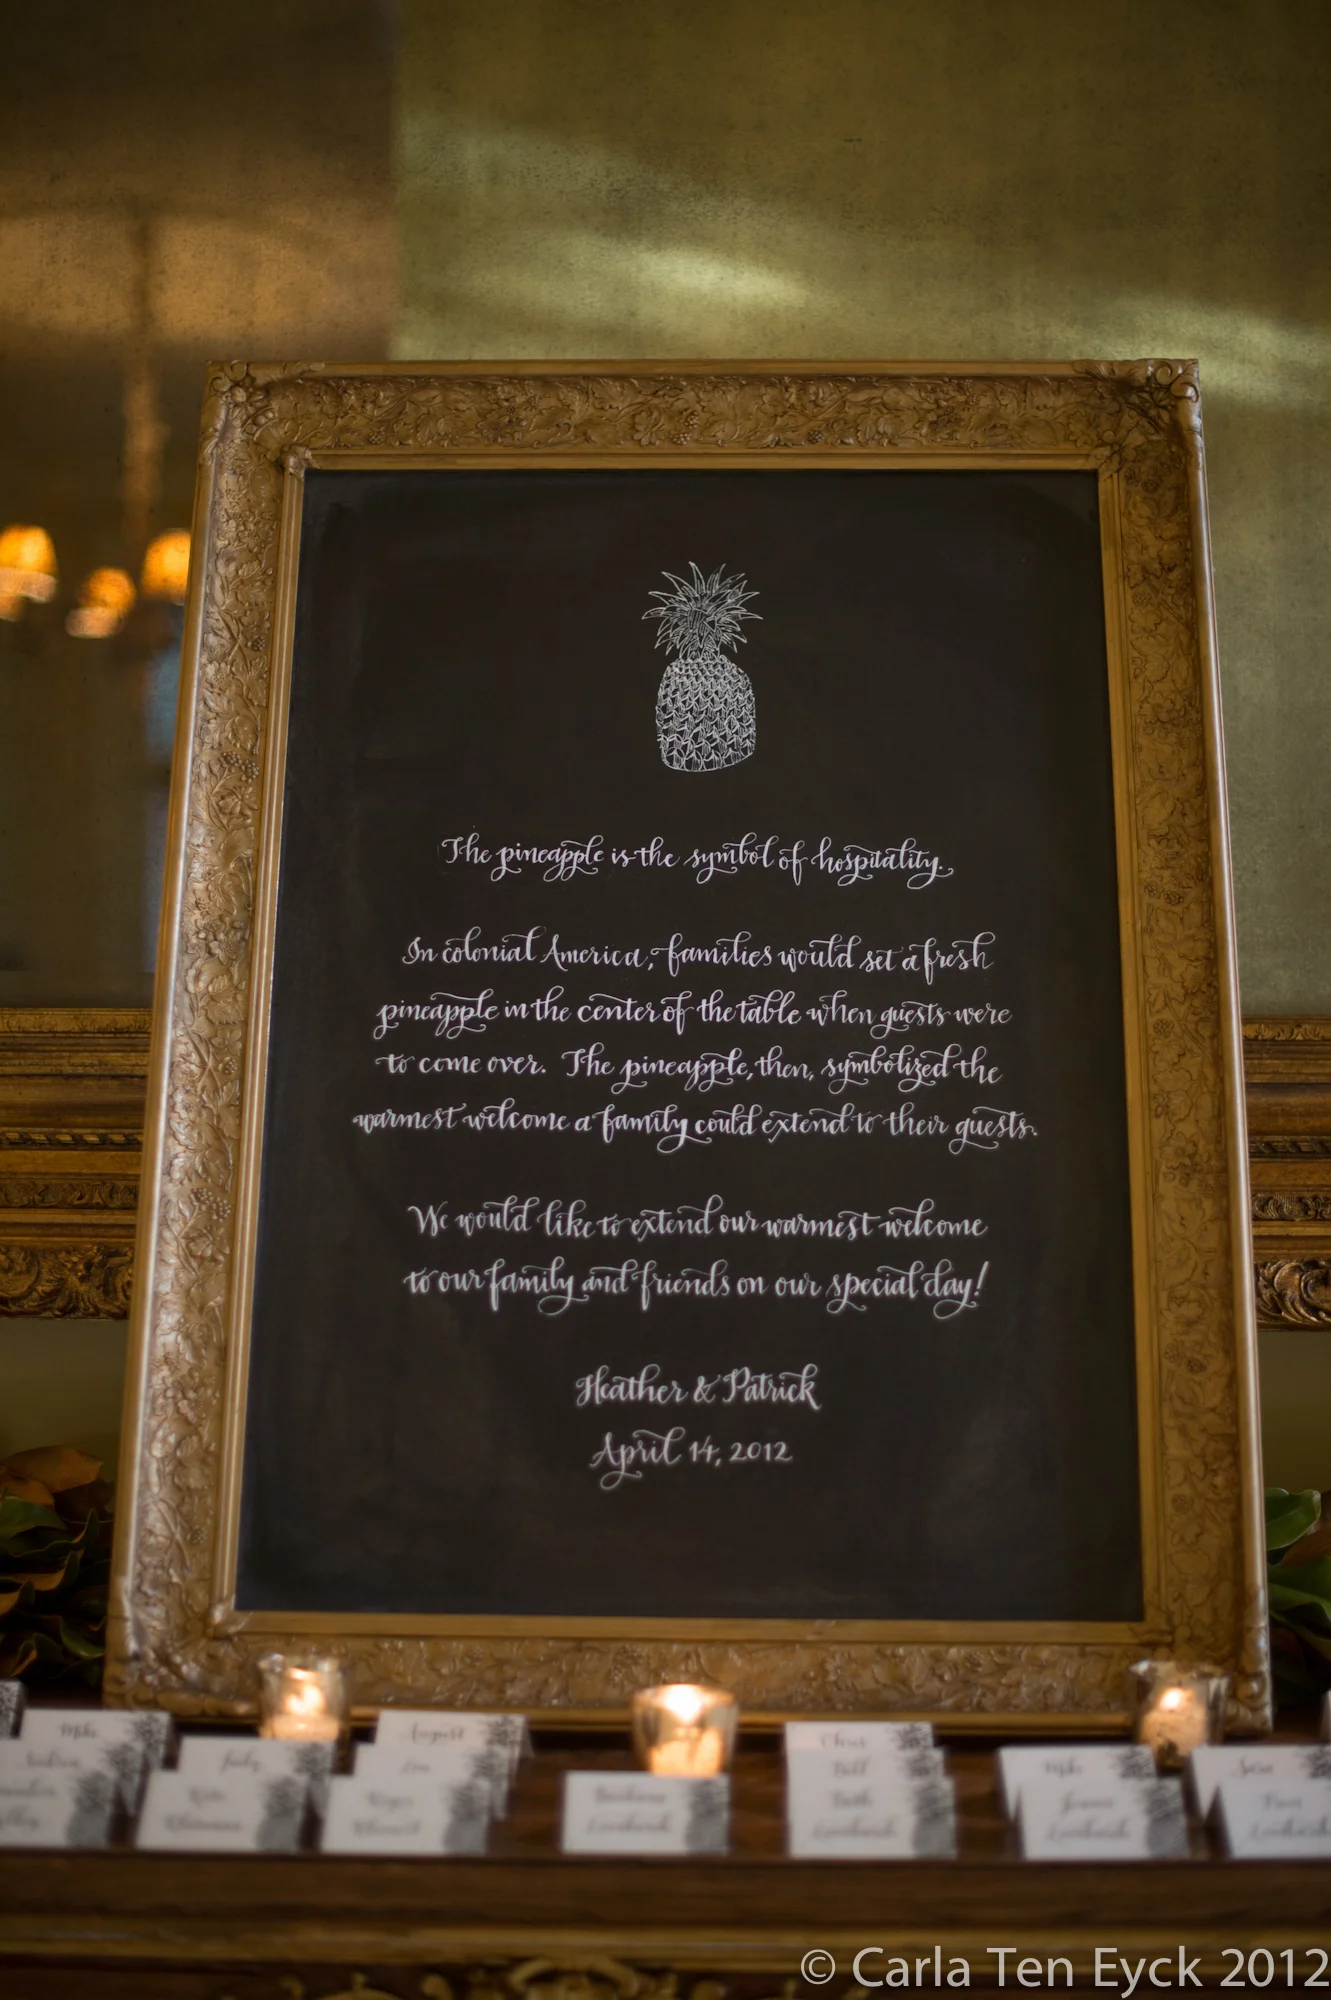 The pineapple is the symbol of hospitality.
In colonial America, families would set a fresh
pineapple in the center of the table when guests were
to come over. The pineapple, then, symbolized the
warmest welcome a family could extend to their guests.
We would like to extend our warmest welcome
to our family and friends on our special day!
Heather & Patrick
April 14, 2012
Mike
August
Judy
Chris
Mike
© Carla Ten Eyck 2012